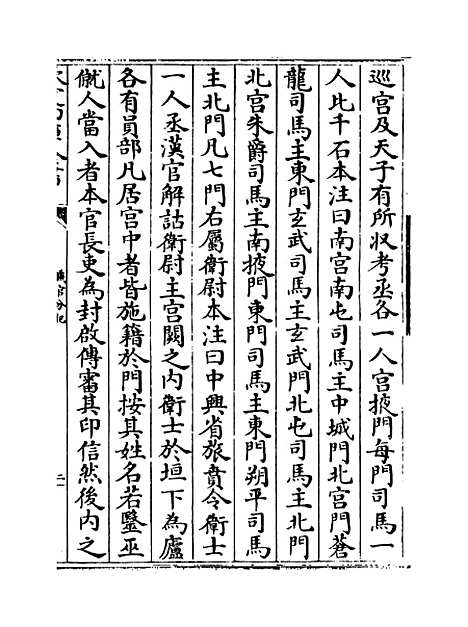 巡宫及天子有所收考丞各一人宫掖門每門司馬一
人比千石本注曰南宫南屯司馬主中城門北宫門蒼
龍司馬主東門玄武司馬主玄武門北屯司馬主北門
北宫朱爵司馬主南掖門東門司馬主東門朔平司馬
主北門凡七門右屬衛尉本注曰中興省旅賁令衛士
一人丞漢官解詁衛尉主宫闕之内衛士於垣下為廬
各有員部凡居宫中者皆施籍於門按其姓名若毉巫
僦人當入者本官長吏為封啟傳審其印信然後内之
職官分紀